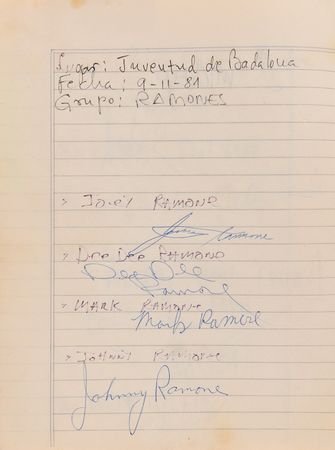 Lugar: Juventud de Badalona
Fecha: 9-11-81
Grupo: RAMONES
> Joey RAMONE
Ramone
> Dee Dee RAMONE
Dee Dee
Ramone
> MARK RAMONE
Mark Ramone
> JOHNNY RAMONE
Johnny Ramone